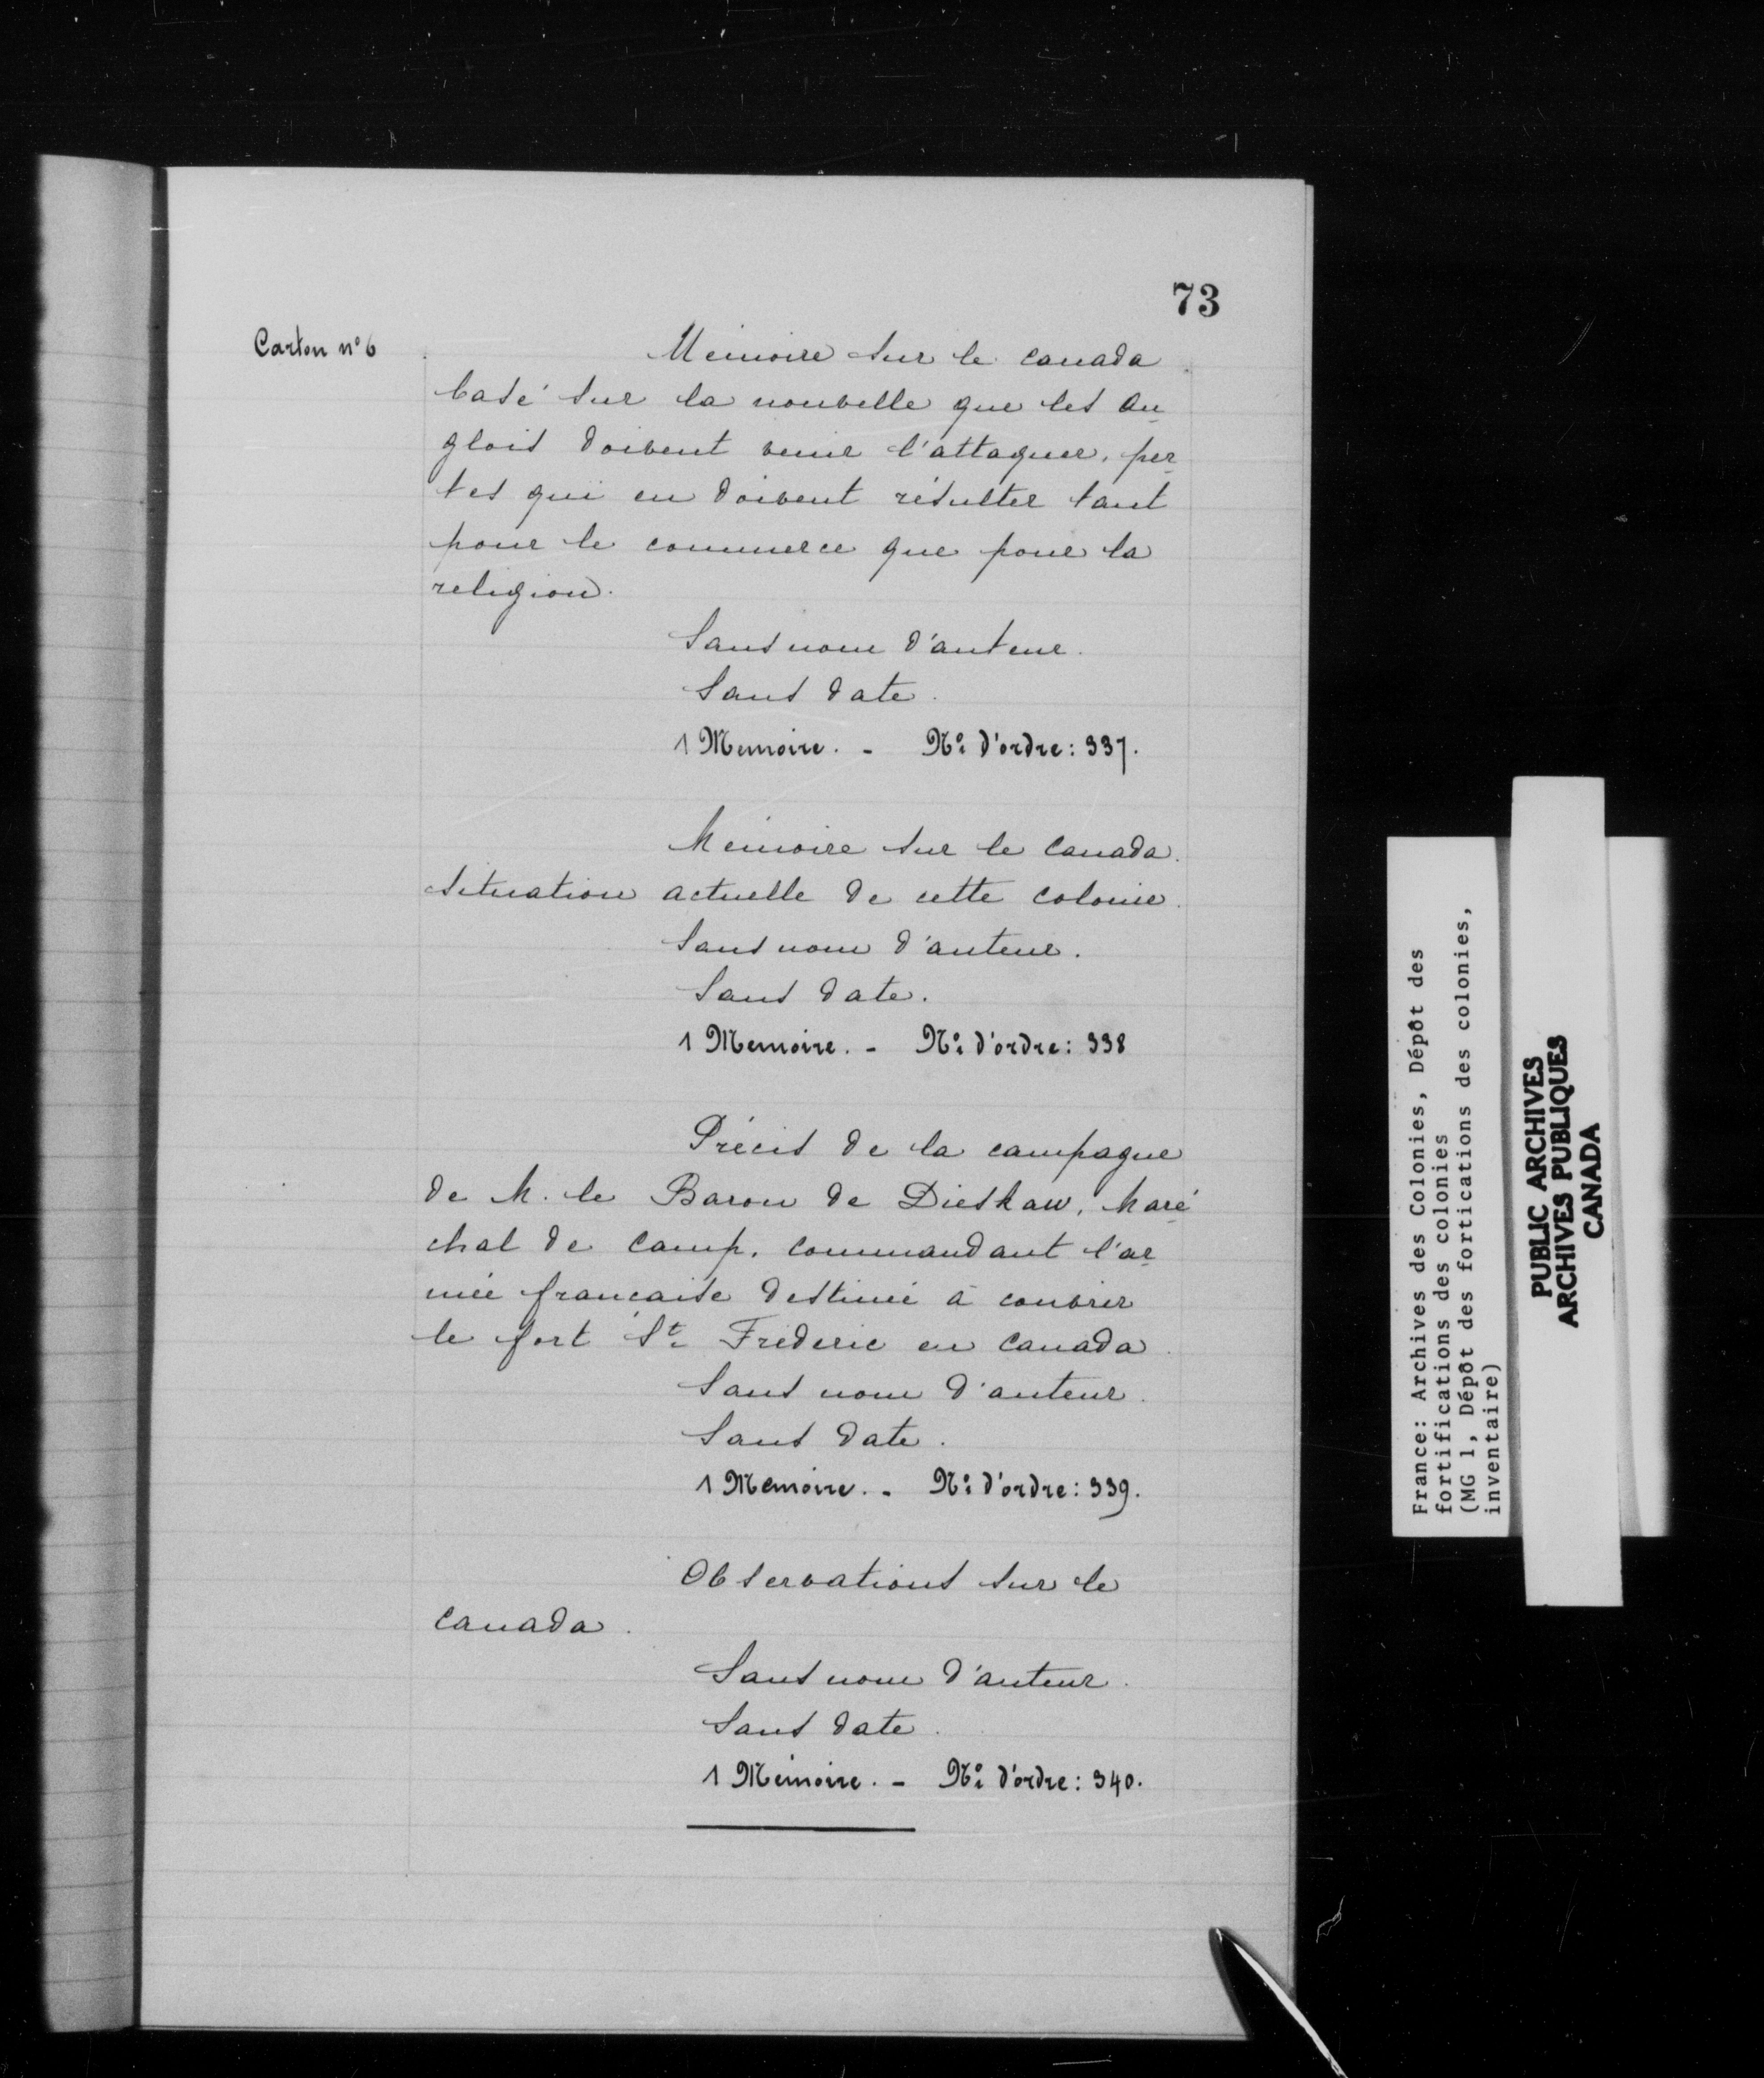 73
Carton n° 6
Mémoire sur le Canada
basé sur la nouvelle que les An
glois doivent venir l'attaquer, per
tes qui en doivent résulter tant
pour le commerce que pour la
religion.
Sans nom d'auteur.
Sans date.
1 Memoire. - N° d'ordre: 337.
Mémoire sur le Canada.
Situation actuelle de cette colonie.
Sans nom d'auteur.
Sans date.
1 Memoire. - N° d'ordre: 338
Précis de la campagne
de M. le Baron de Dieskaw, Maré
chal de Camp, commandant l'ar
mée francaise destinée à couvrir
le fort St Fréderic en Canada.
Sans nom d'auteur.
Sans date.
1 Memoire. - N° d'ordre: 339.
Observations sur le
Canada.
Sans nom d'auteur.
Sans date.
1 Mémoire. - N° d'ordre: 340.
France: Archives des Colonies, Dépôt des
fortifications des colonies
(MG 1, Dépôt des fortications des colonies,
inventaire)
PUBLIC ARCHIVES
ARCHIVES PUBLIQUES
CANADA